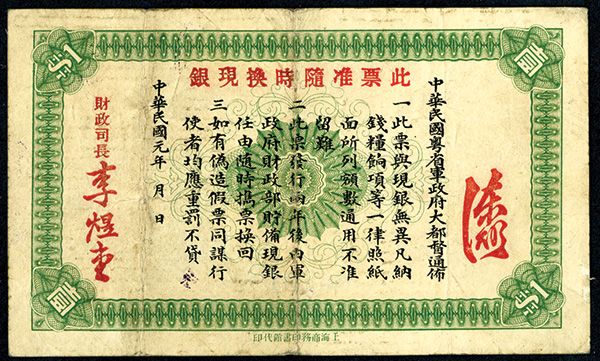 此票准隨時換現銀
中華民國粵省軍政府大都督通佈
一此票與現銀無異凡納
錢糧餉項等一律照紙
面所列額數通用不准
留難
二此票發行兩年後由軍
政府財政部貯備現銀
任由隨時攜票換回
三如有偽造假票同謀行
使者均應重罰不貸
中華民國元年 月 日
財政司長
李煜堂
壹
壹
1
1
上海商務印書館代印